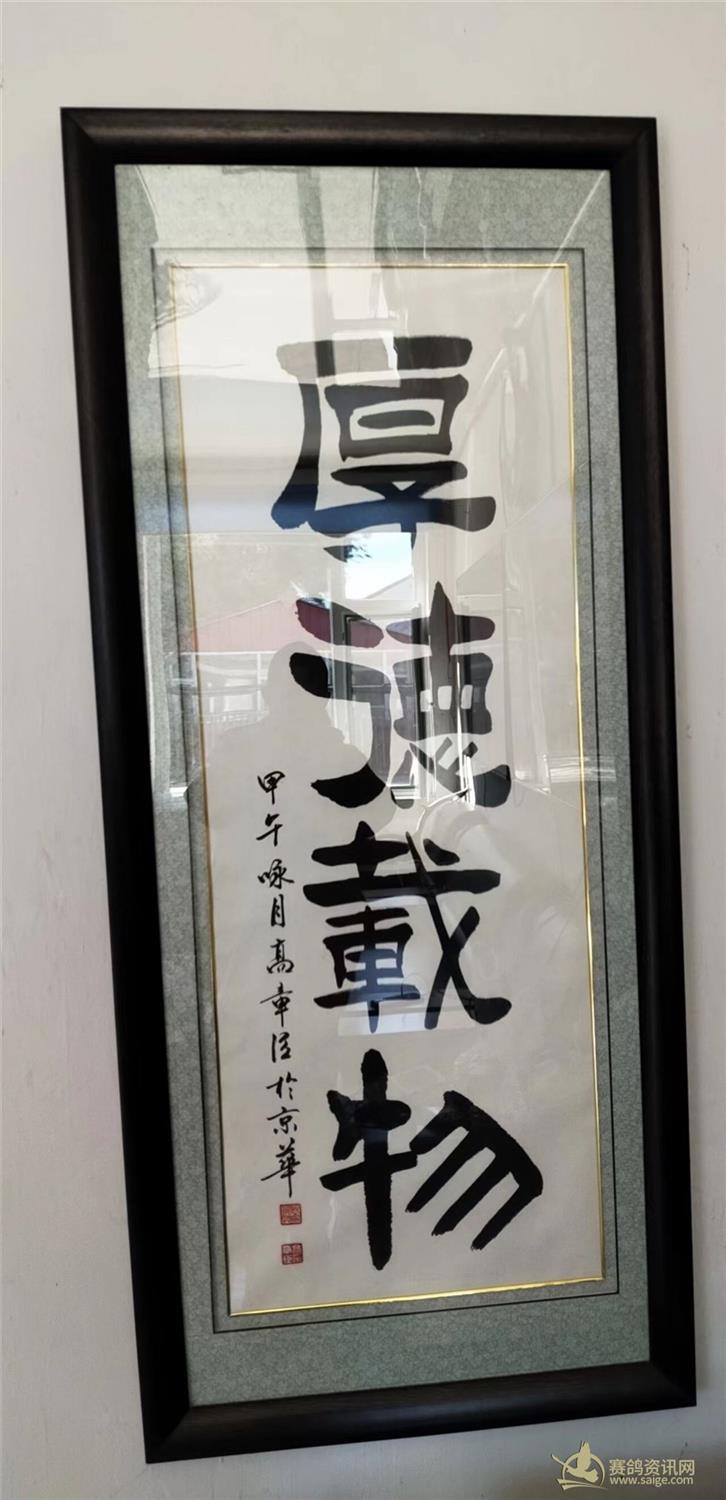 厚德載物
甲午咏月高章臣於京華
赛鸽资讯网
www.saige.com